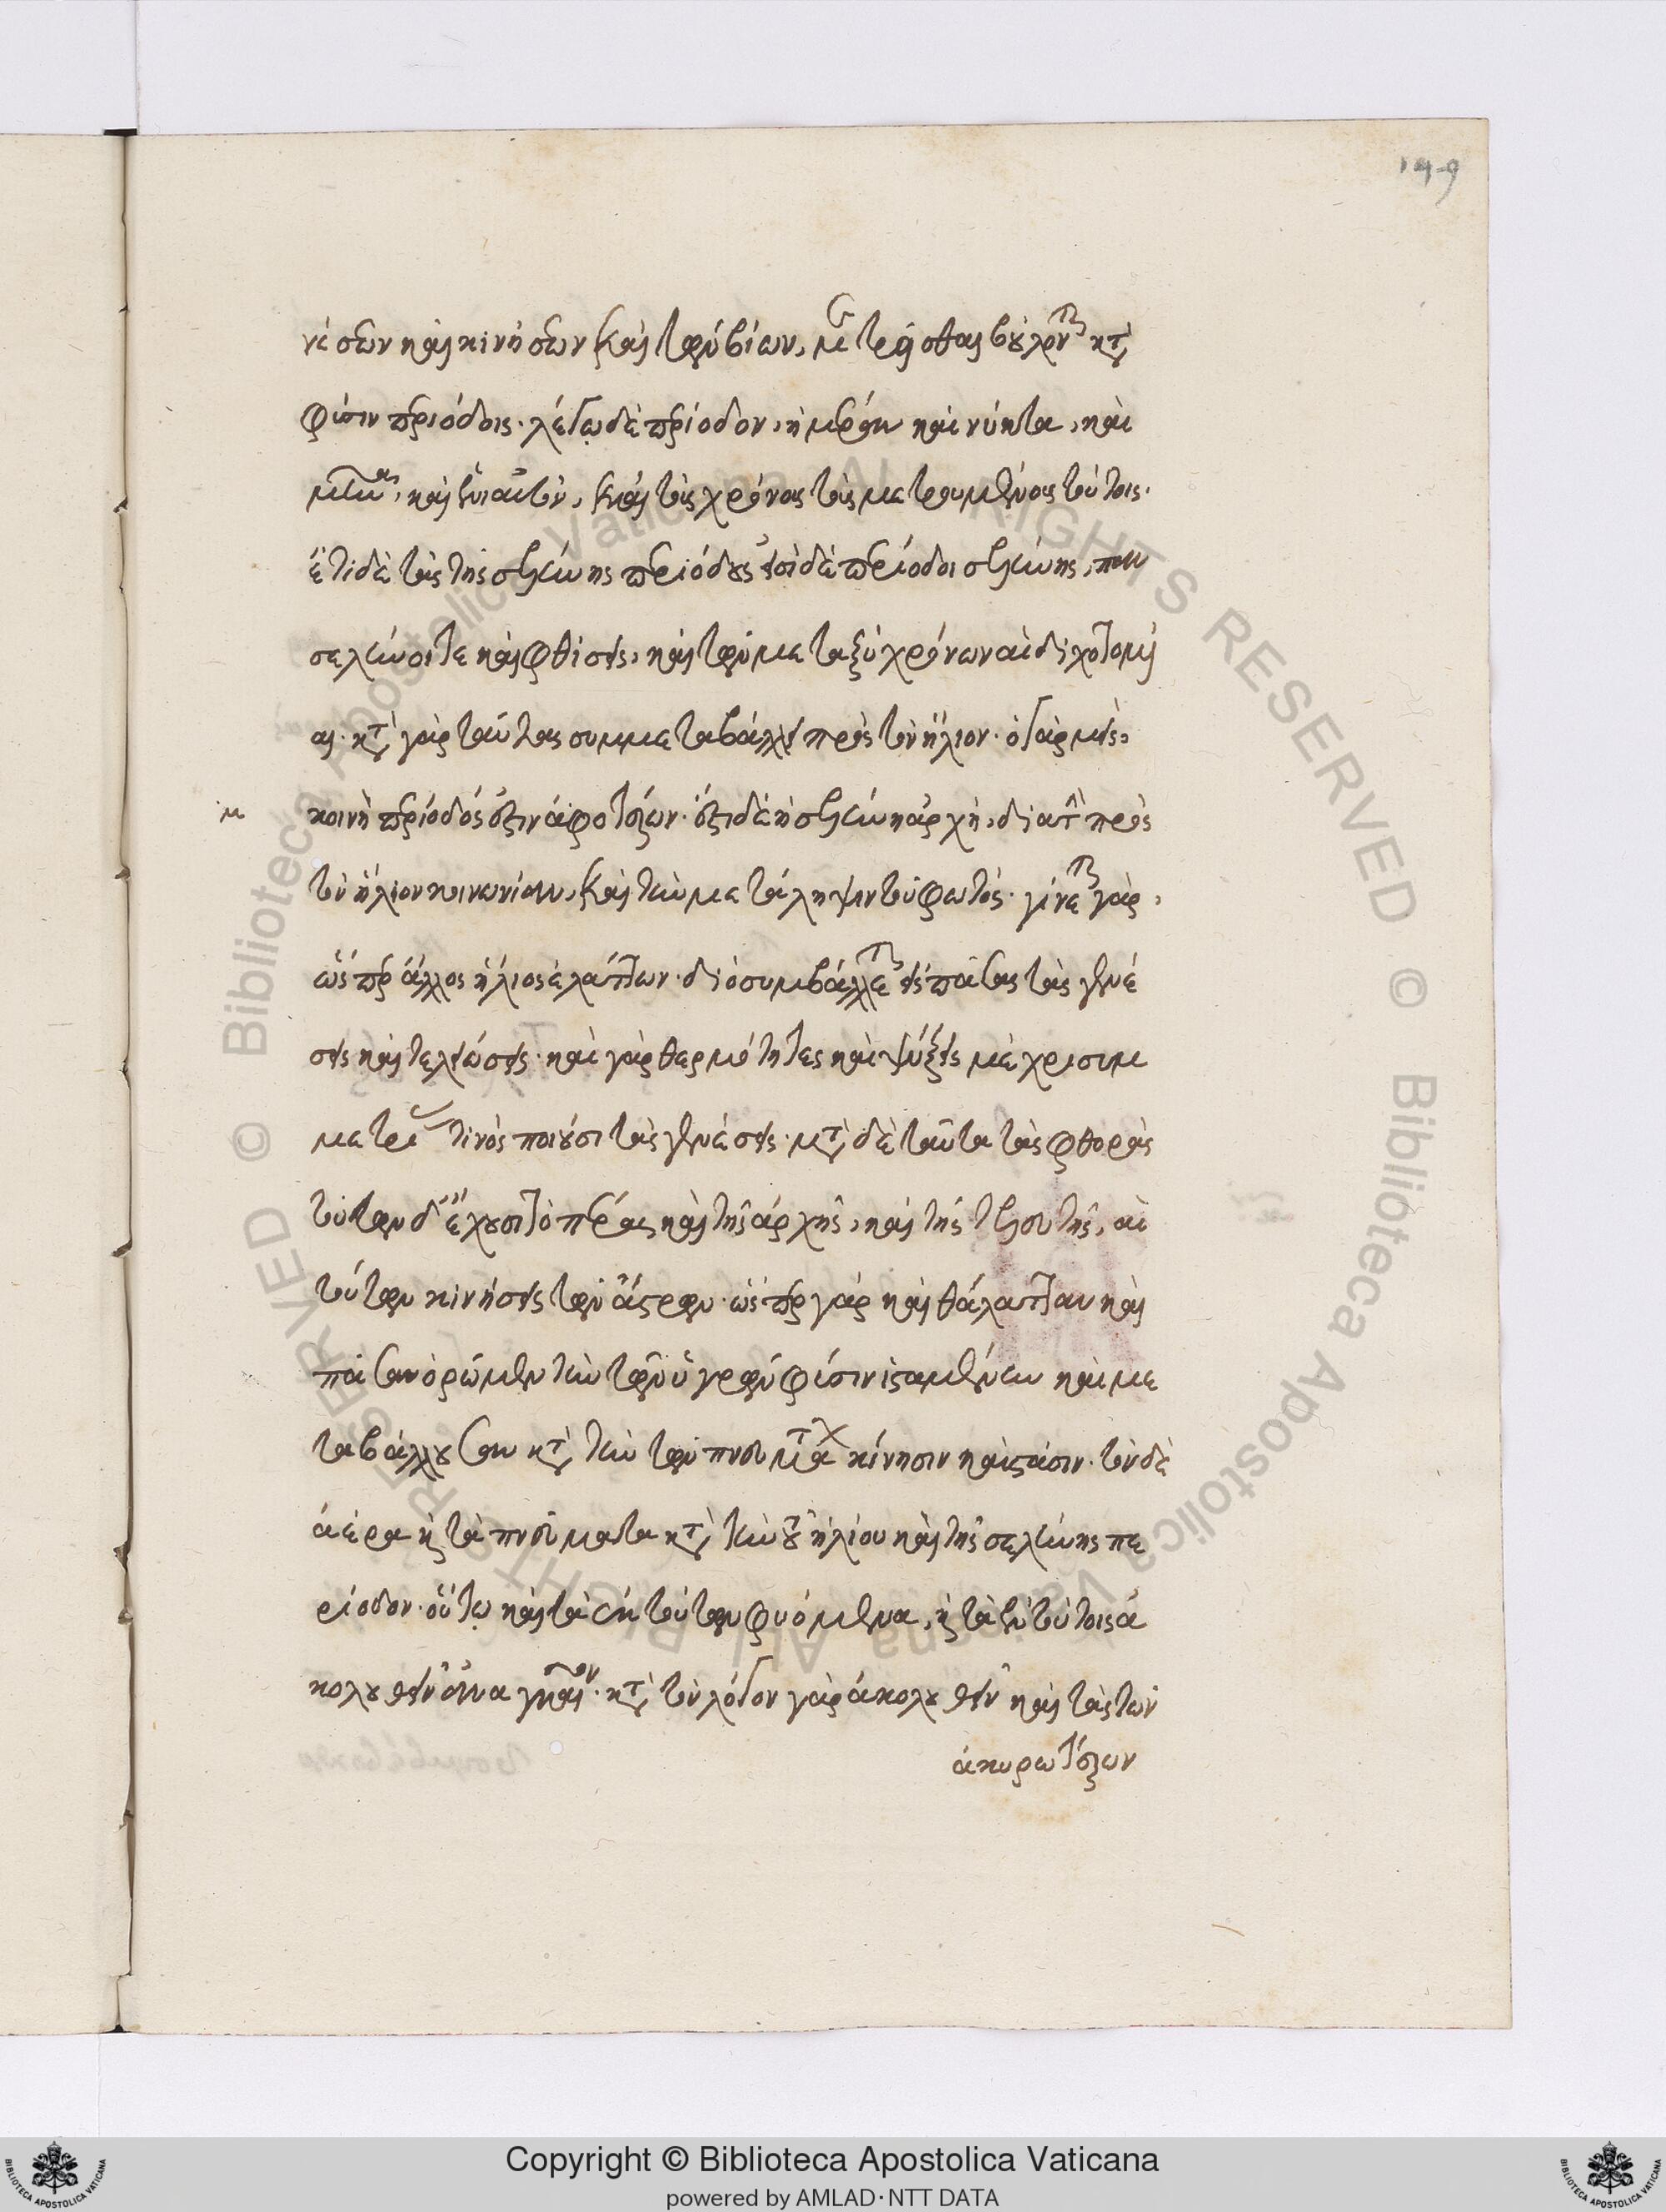 149
νέσεων καὶ κινήσεων καὶ τῶν βίων, μετρεῖσθαι βούλονται κατὰ
φύσιν περιόδοις. λέγω δὲ περίοδον, ἡμέραν καὶ νύκτα, καὶ
μῆνα, καὶ ἐνιαυτὸν, καὶ τοὺς χρόνους τοὺς μετρουμένους τούτοις.
ἔτι δὲ τὰς τῆς σελήνης περιόδους εἰσὶ δὲ περίοδοι σελήνης, παν
σέληνοί τε καὶ φθίσεις, καὶ τῶν μεταξὺ χρόνων αἱ διχοτομί
αι. κατὰ γὰρ ταύτας συμμεταβάλλει πρὸς τὸν ἥλιον. ὁ γὰρ μεὶς,
κοινὴ περίοδός ἐστιν ἀμφοτέρων. ἔστι δὲ ἡ σελήνη ἀρχὴ, διὰ τὴν πρὸς
τὸν ἥλιον κοινωνίαν, καὶ τὴν μετάληψιν τοῦ φωτός. γίνεται γὰρ,
ὥσπερ ἄλλος ἥλιος ἐλάττων. διὸ συμβάλλεται εἰς πάσας τὰς γενέ
σεις καὶ τελειώσεις. καὶ γὰρ θερμότητες καὶ ψύξεις μέχρι συμ
μετρίας τινὸς ποιοῦσι τὰς γενέσεις. μετὰ δὲ ταῦτα τὰς φθοράς
τούτων δ' ἔχουσι τὸ πέρας καὶ τῆς ἀρχῆς, καὶ τῆς τελευτῆς, αἱ
τούτων κινήσεις τῶν ἄστρων. ὥσπερ γὰρ καὶ θάλατταν καὶ
πᾶσαν ὁρῶμεν τὴν τῶν ὑγρῶν φύσιν ἱσταμένην καὶ με
ταβάλλουσαν κατὰ τὴν τῶν πνευμάτων κίνησιν καὶ στάσιν. τὸν δὲ
ἀέρα καὶ τὰ πνεύματα κατὰ τὴν τοῦ ἡλίου καὶ τῆς σελήνης πε
ρίοδον. οὕτω καὶ τὰ ἐκ τούτων φυόμενα, καὶ τὰ ἐν τούτοις ἀ
κολουθεῖν ἀναγκαῖον. κατὰ τὸν λόγον γὰρ ἀκολουθεῖν καὶ τὰς τῶν
ἀκυροτέρων